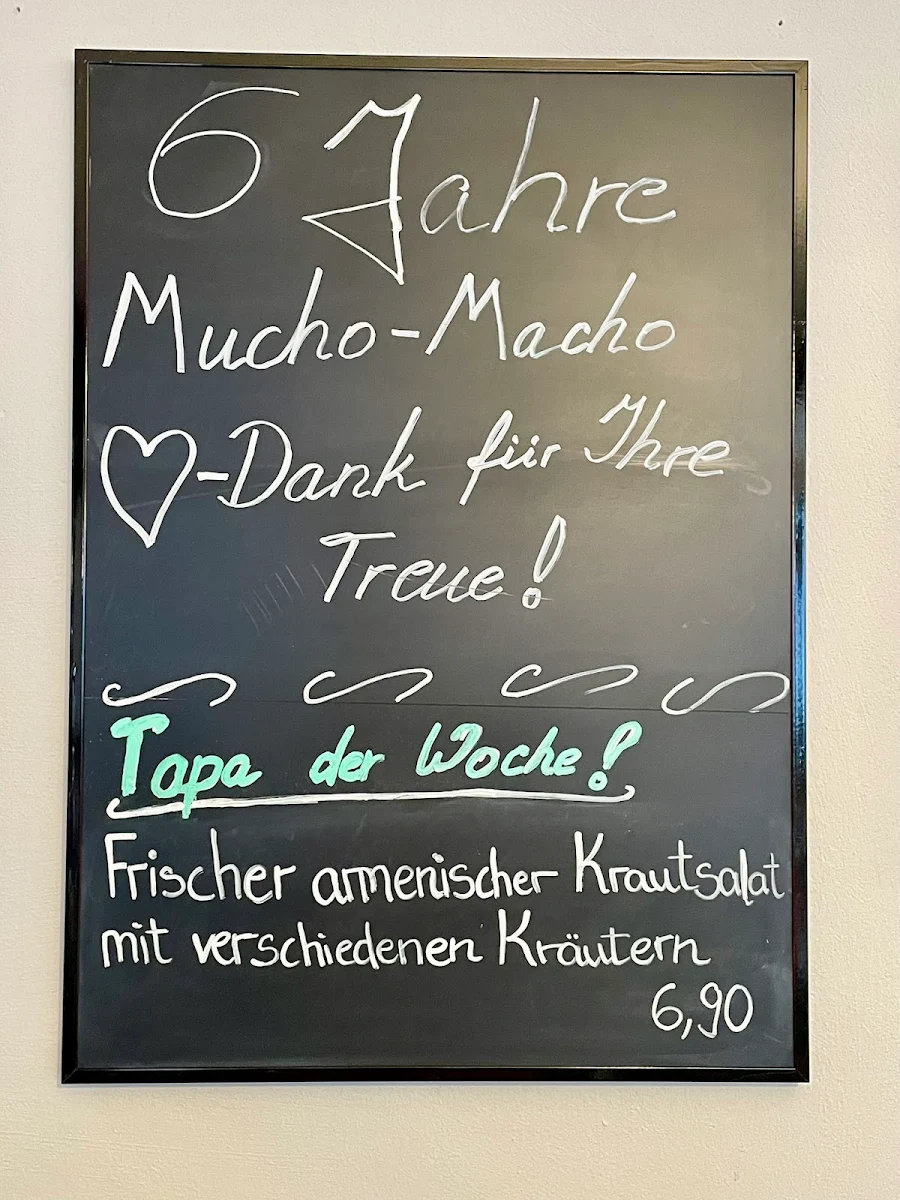 6 Jahre
Mucho-Macho
♡-Dank für Ihre
Treue!
Tapa der Woche!
Frischer armenischer Krautsalat
mit verschiedenen Kräutern
6,90